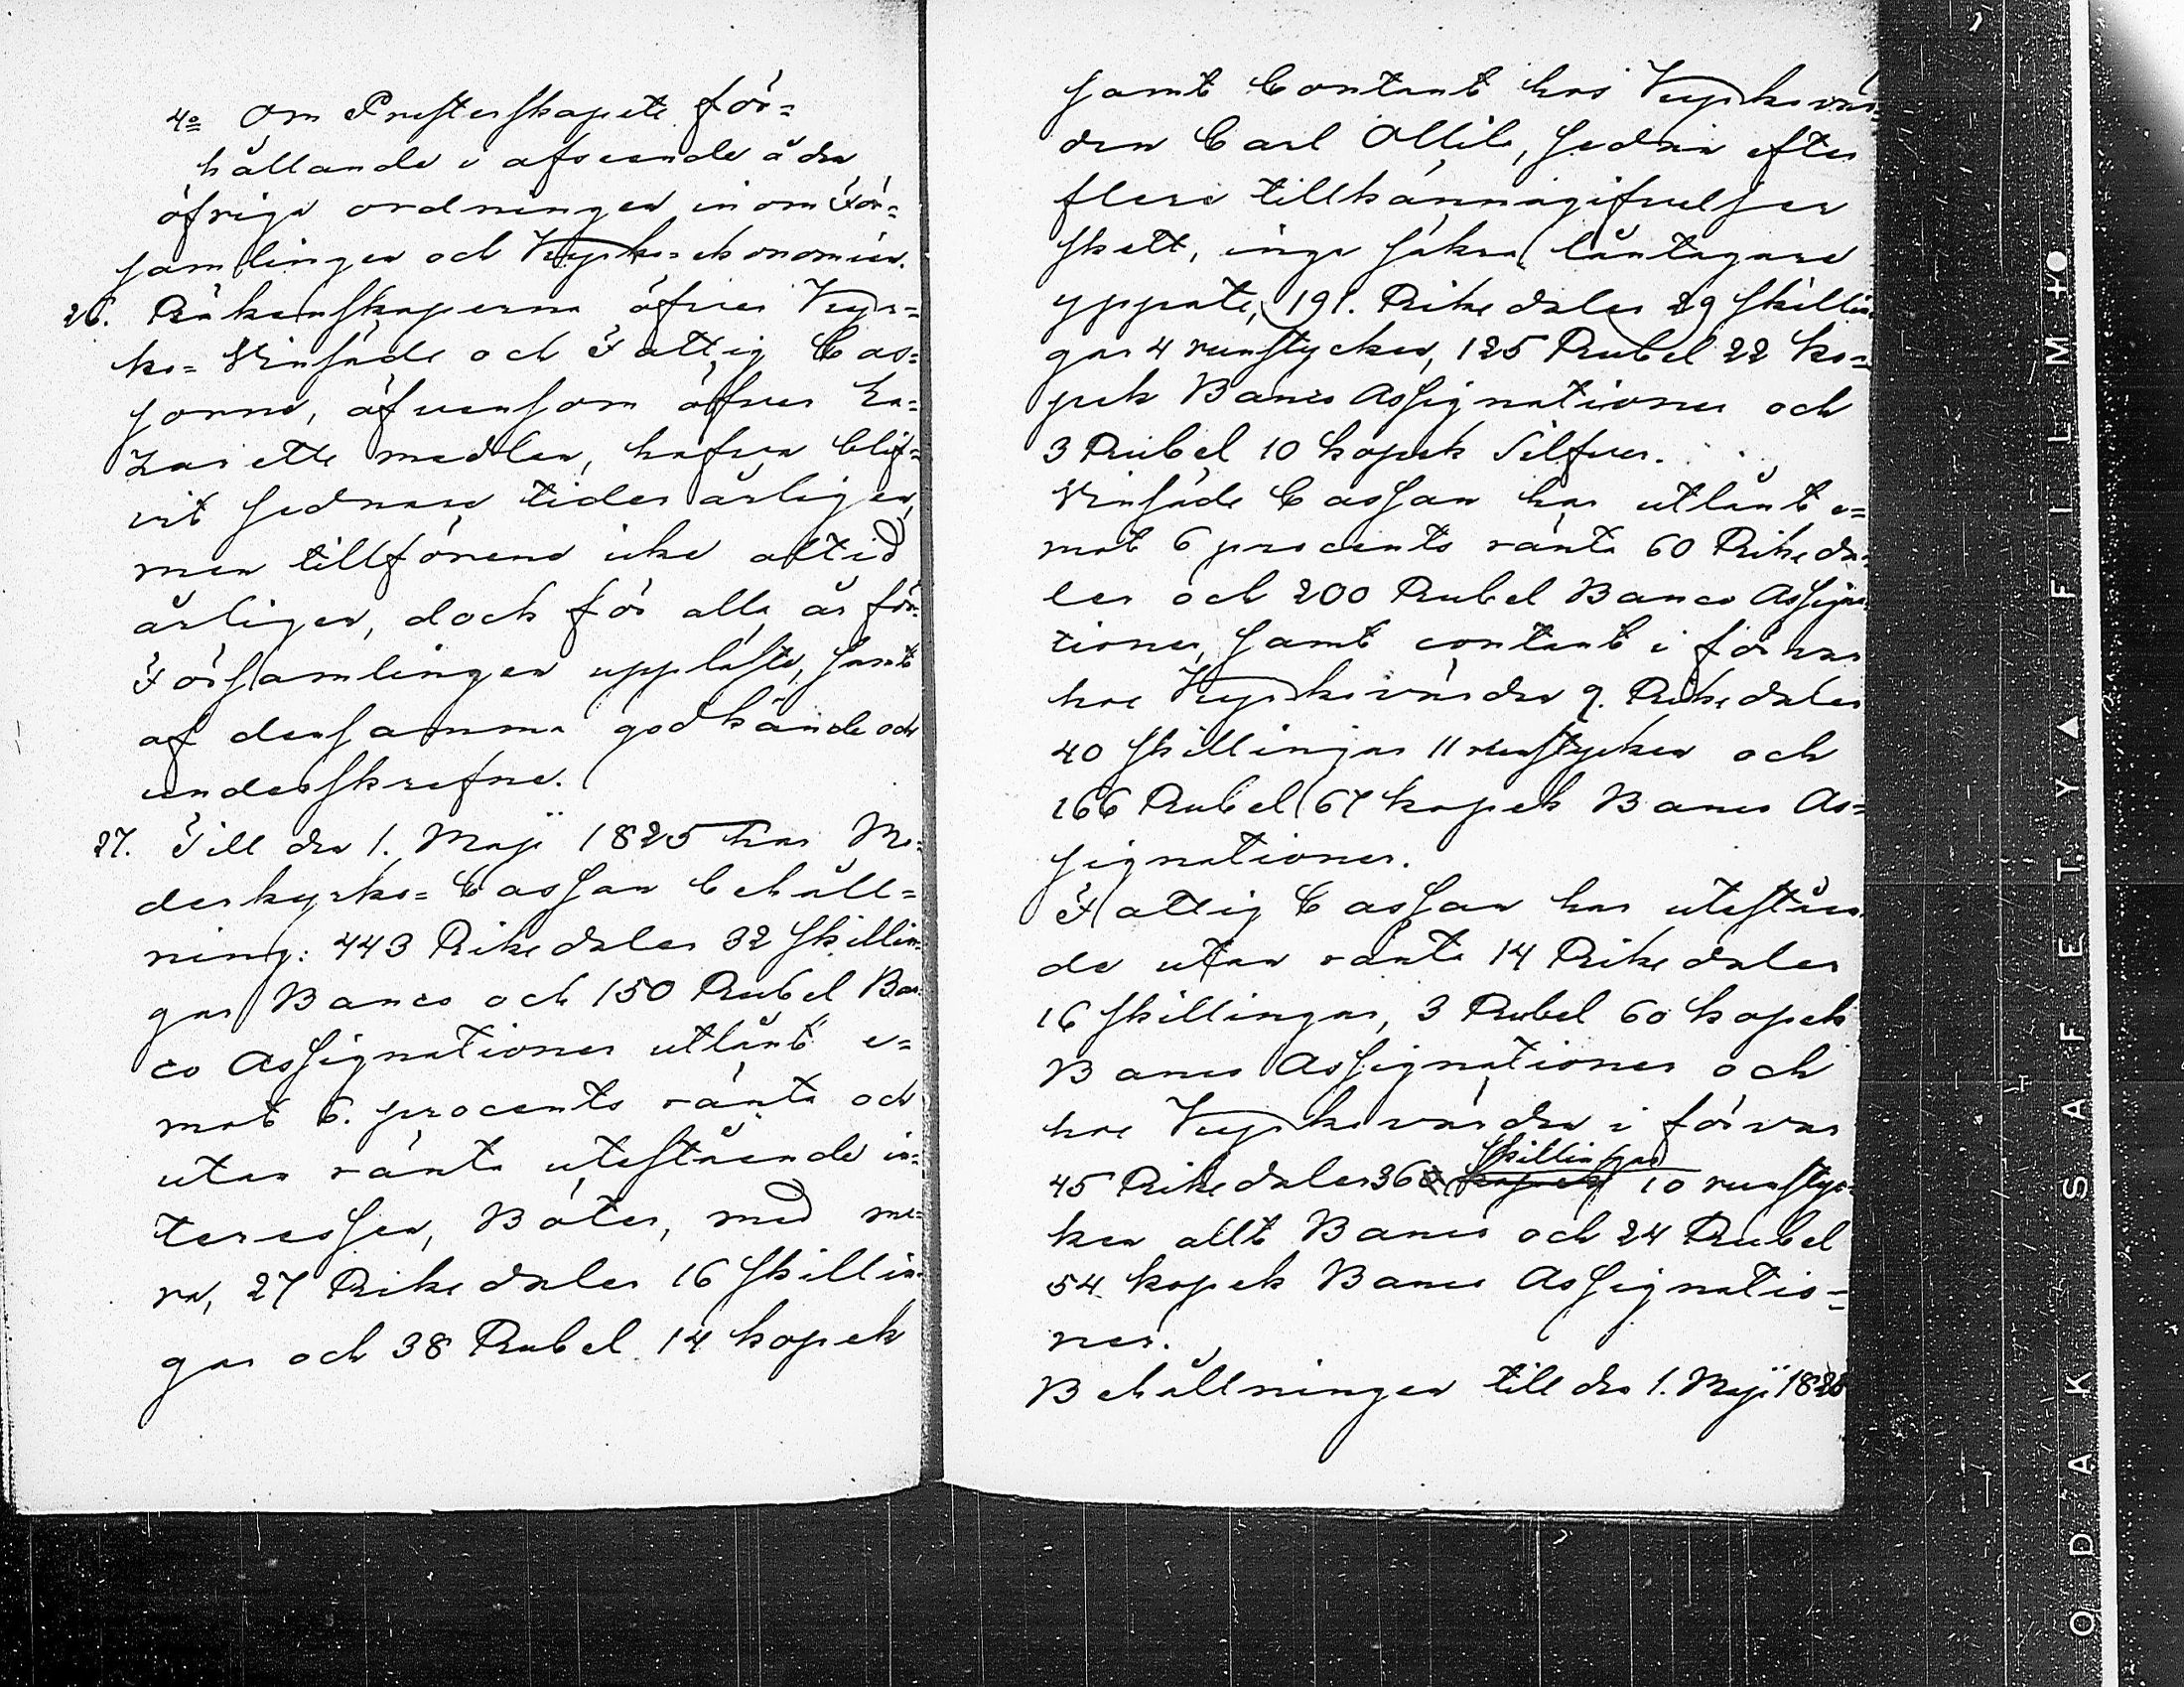 4o Om Presterskapets för=
hållande i afseende å den
öfriga ordningen inom För=
samlingen och Kyrko=ekonomien.
26. Räkenskaperna öfver Kyr=
ko= Vinsäds och Fattig Cas=
sorne, äfvensom öfver La=
zaretts medlen, hafva blif=
vit sednare tider årligen,
men tillförene icke altid
årligen, dock för alla år för
Församlingen uppläste, samt
af densamma godkände och
underskrefne.
27. Till den 1. Maji 1825 har Mo=
derkyrko=Cassan behåll=
ning: 443 Riksdaler 32 skillin=
gar Banco och 150 Rubel Ban=
co Assignationer utlånt e=
mot 6. procents ränta och
utan ränta utestående in=
teressen, Böter, med me=
ra, 27 Riksdaler 16 skillin=
gar och 38 Rubel 14 kopek
samt Contant hos Kyrkovär=
den Carl Ollila, sedan efter
flera tillkännagifvelser
skett, inga säkra låntagare
yppats, 191. Riksdaler 29 skillin=
gar 4 runstycken, 125 Rubel 22 ko=
pek Banco Assignationer och
3 Rubel 10 kopek Silfver.
Vinsäds Cassan har utlånt e=
mot 6 procents ränta 60 Riksda=
ler och 200 Rubel Banco Assigna=
tioner, samt contant i förvar
hos Kyrkovärden 9. Riksdaler
40 skillingar 11 runstycken och
166 Rubel 67 kopek Banco As=
signationer.
Fattig Cassan har uteståen
de utan ränta 14 Riksdaler
16 skillingar, 3 Rubel 60 kopek
Banco Assignationer och
hos Kyrkovärden i förvar
skillingar
45 Riksdaler 36 kopek 10 runstyc=
ken allt Banco och 24 Rubel
54 kopek Banco Assignatio=
ner.
Behållningen till den 1. Maji 1825
KODAK SAFETY ▲ FILM +●